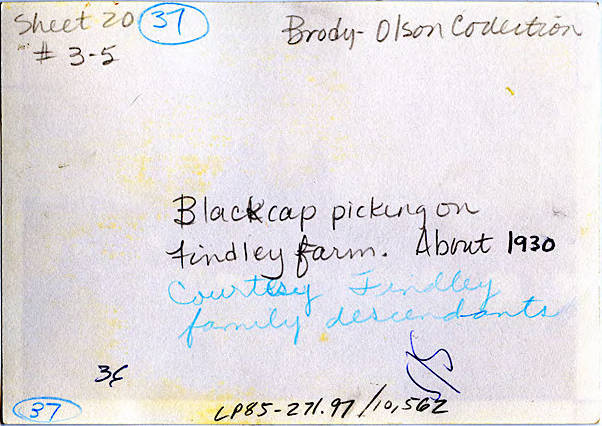 Sheet 20 37 Brody-Olson Collection
# 3-5
Blackcap picking on
Findley farm. About 1930
Courtesy Findley
family descendants
36
37 LP85-271.97/10,562